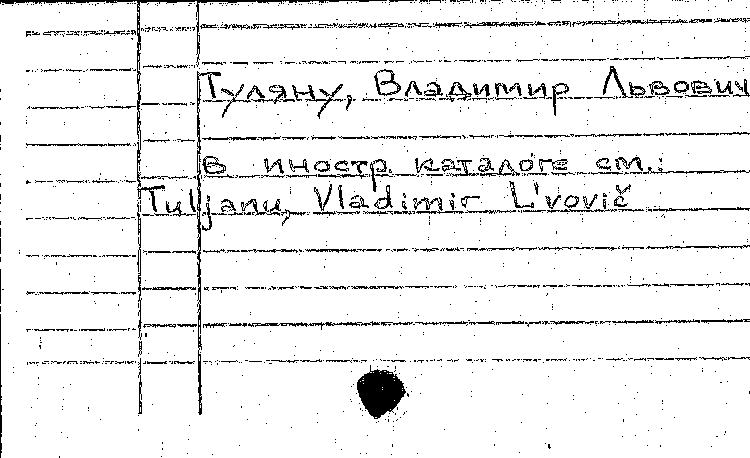 Туляну, Владимир Львович
в иностр. каталоге см.:
Tuljanu, Vladimir L'vovič